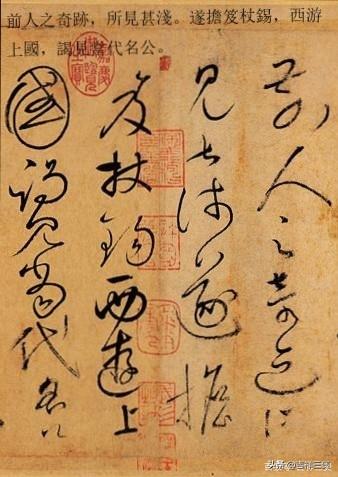 前人之奇跡，所見甚淺。遂擔笈杖錫，西游
上國，謁見當代名公。
前人之奇迹所
見甚淺遂擔
笈杖錫西遊上
國謁見當代名公
嘉慶御覽之寶
头条